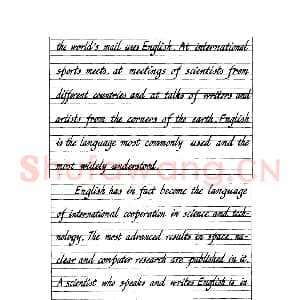 the world's mail uses English. At international
sports meets, at meetings of scientists from
different countries and at talks of writers and
artists from the corners of the earth, English
is the language most commonly used and the
most widely understood.
English has in fact become the language
of international cooperation in science and tech-
nology. The most advanced results in space, nu-
clear and computer research are published in it.
A scientist who speaks and writes English is in